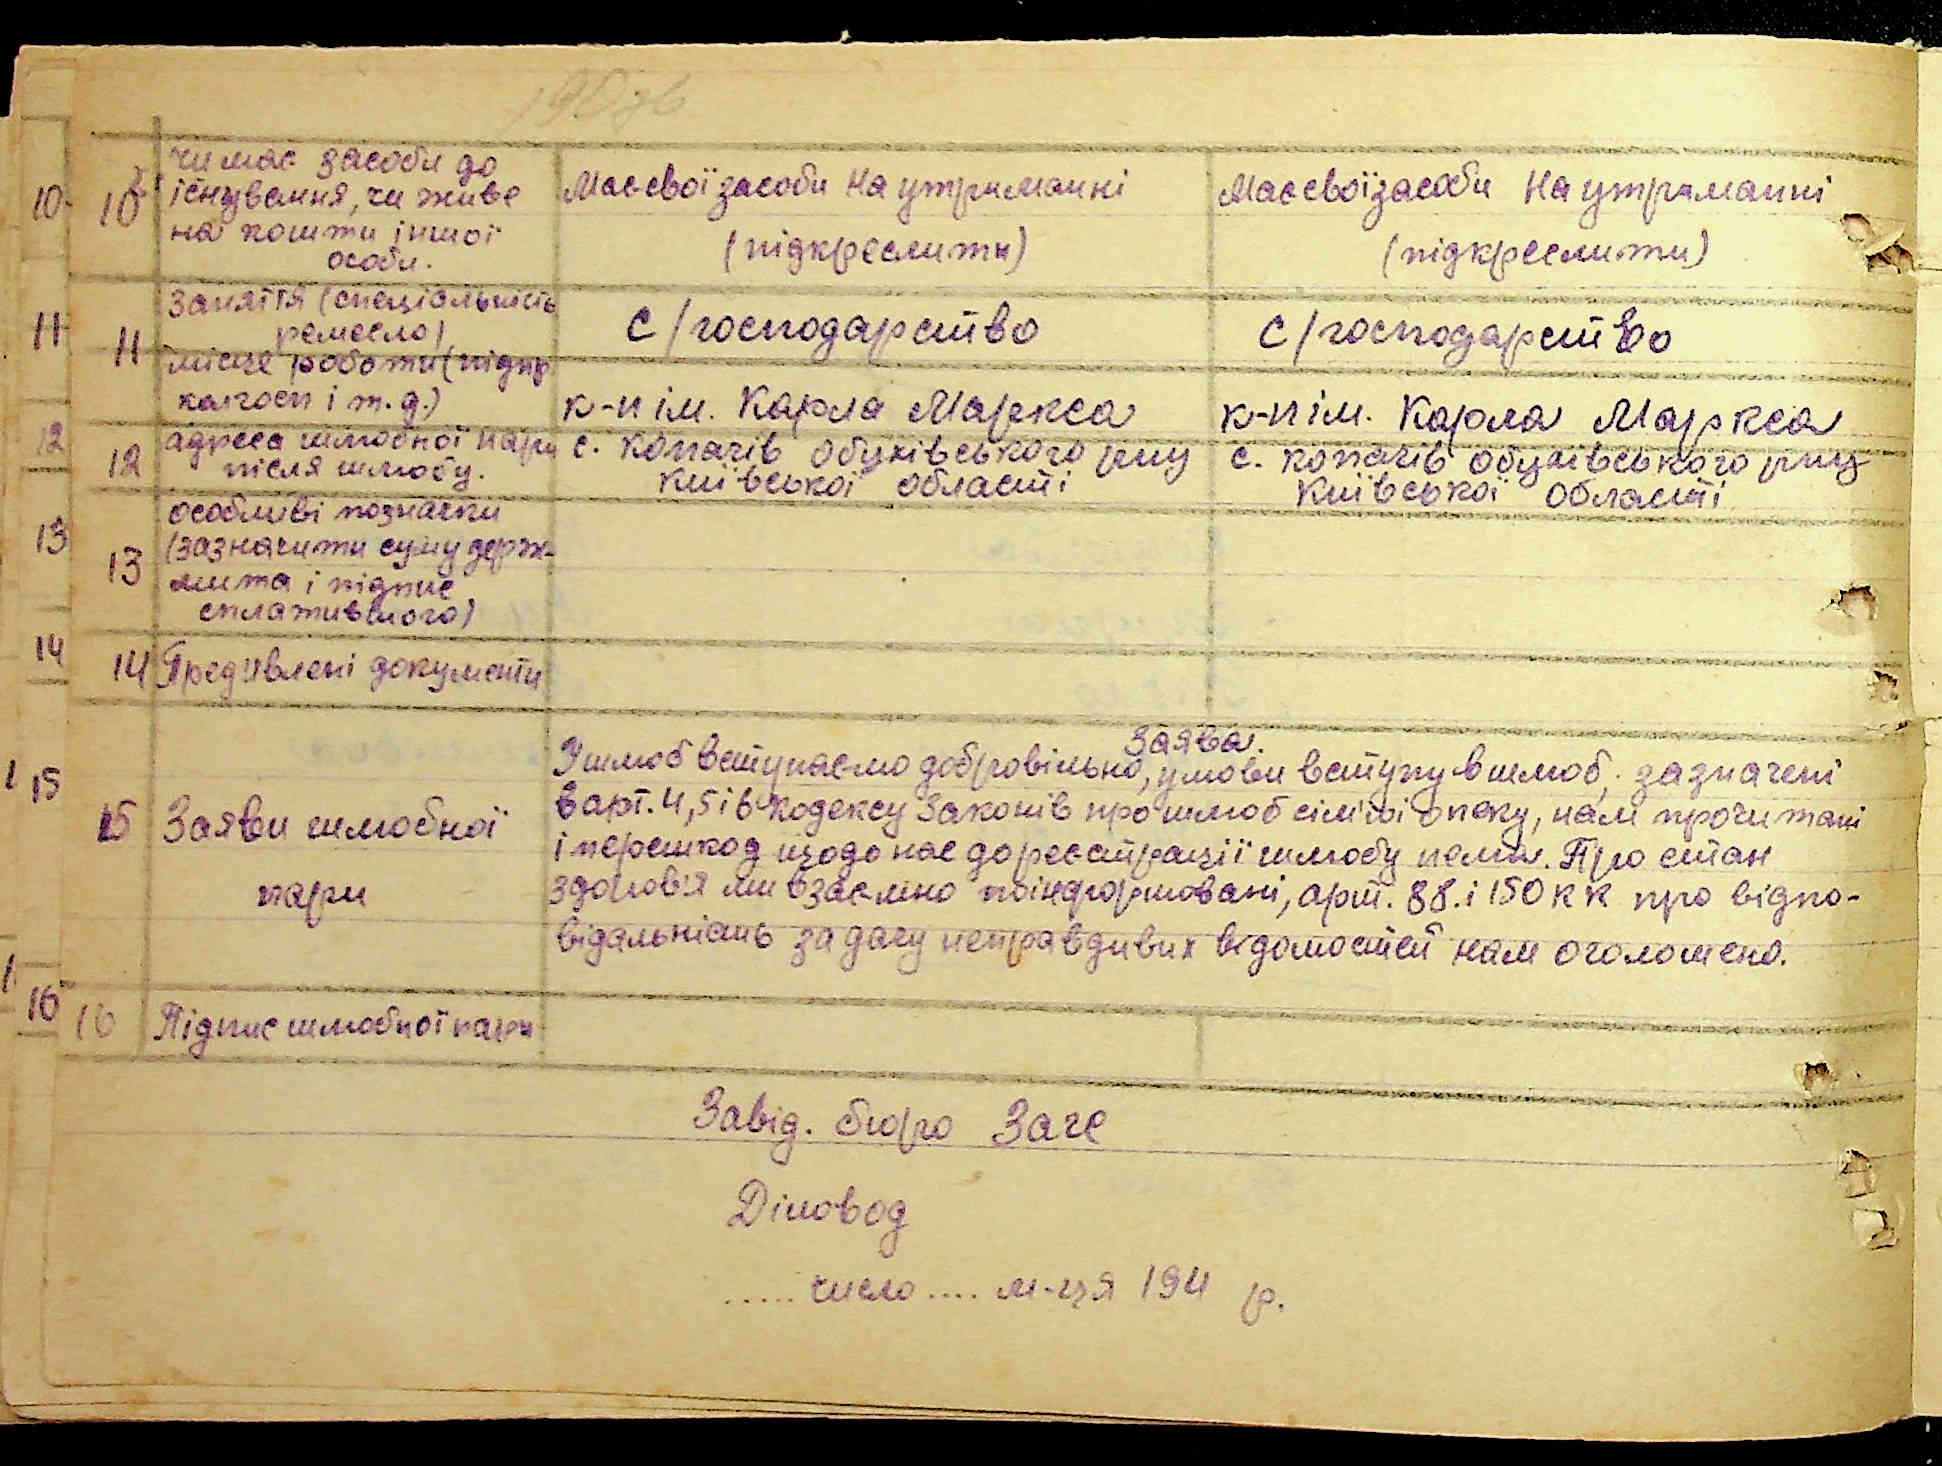 190зв
10 10 чи має засоби до
існування, чи живе
на кошти іншої
особи.
Має свої засоби На утриманні
(підкреслити)
Має свої засоби На утриманні
(підкреслити)
11 11 Заняття (спеціальність
ремесло)
С/господарство
С/господарство
місце роботи (підпр
колгосп і т.д.)
к-п ім. Карла Маркса
к-п ім. Карла Маркса
12 12 адреса шлюбної пари
після шлюбу.
с. Копачів Обухівського р-ну
Київської області
с. Копачів Обухівського р-ну
Київської області
13 13 особливі позначки
(зазначити суму держ-
мита і підпис
сплатившого)
14 14 Пред'явлені документи
15 15 Заяви шлюбної
пари
Заява.
У шлюб вступаємо добровільно, умови вступу в шлюб, зазначені
в арт. 4, 5 і 6 кодексу Законів про шлюб сім'ю і опеку, нам прочитані
і перешкод щодо нас до реєстрації шлюбу нема. Про стан
здоров'я ми взаємно поінформовані, арт. 88. і 150 КК про відпо-
відальність за дачу неправдивих відомостей нам оголошено.
16 16 Підпис шлюбної пари
Завід. бюро Загс
Діловод
..... число .... м-ця 194 р.